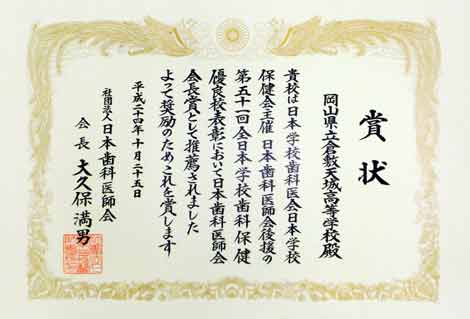 賞状
岡山県立倉敷天城高等学校殿
貴校は日本学校歯科医会日本学校
保健会主催 日本歯科医師会後援の
第五十一回全日本学校歯科保健
優良校表彰において日本歯科医師会
会長賞として推薦されました
よって奨励のためこれを賞します
平成二十四年十月二十五日
社団法人日本歯科医師会
会長 大久保満男